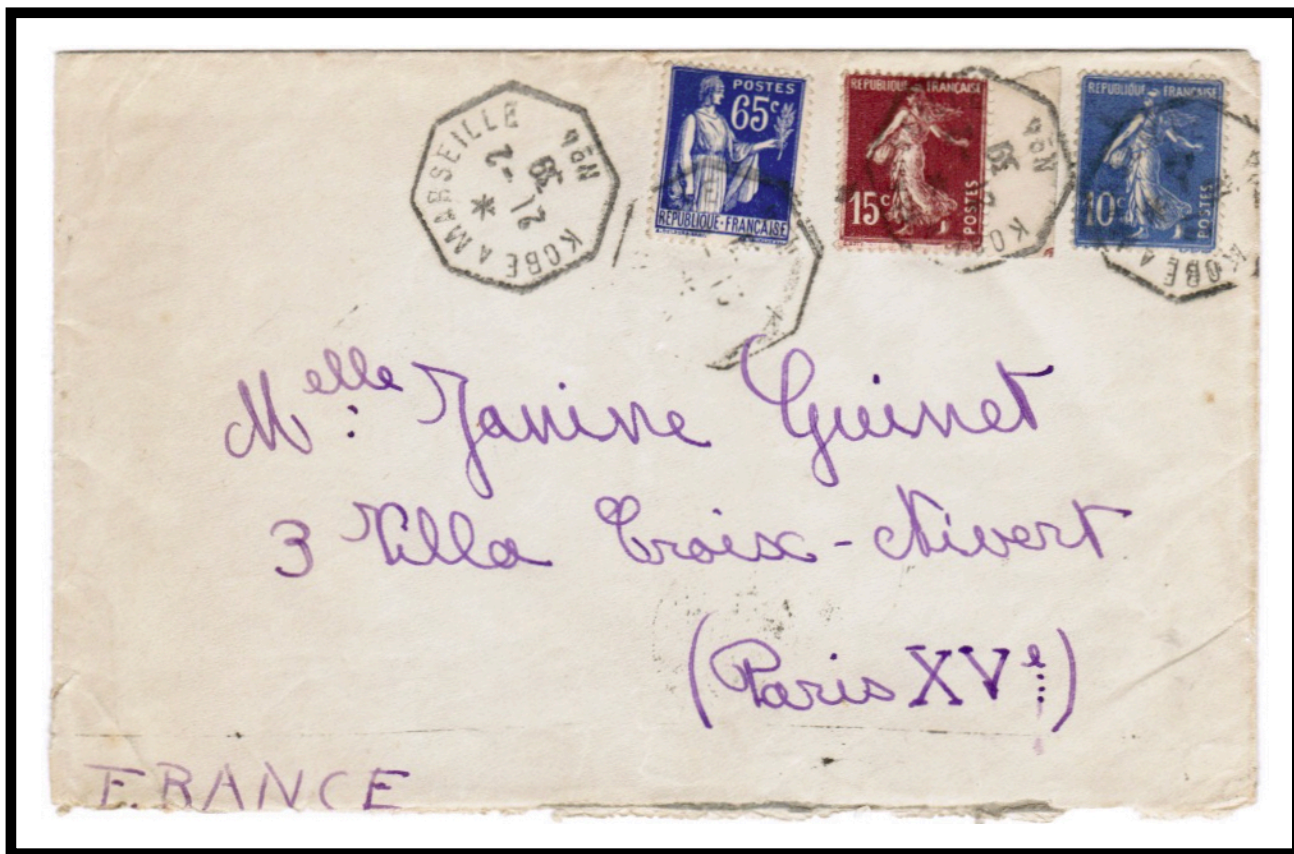 KOBE A MARSEILLE
21 -2
39
No 4
POSTES
65c
REPUBLIQUE-FRANÇAISE
REPUBLIQUE FRANÇAISE
15c
POSTES
No 4
REPUBLIQUE FRANÇAISE
10c
POSTES
OBE A
Melle Janine Guinet
3 Villa Croix-Nivert
(Paris XVe)
FRANCE